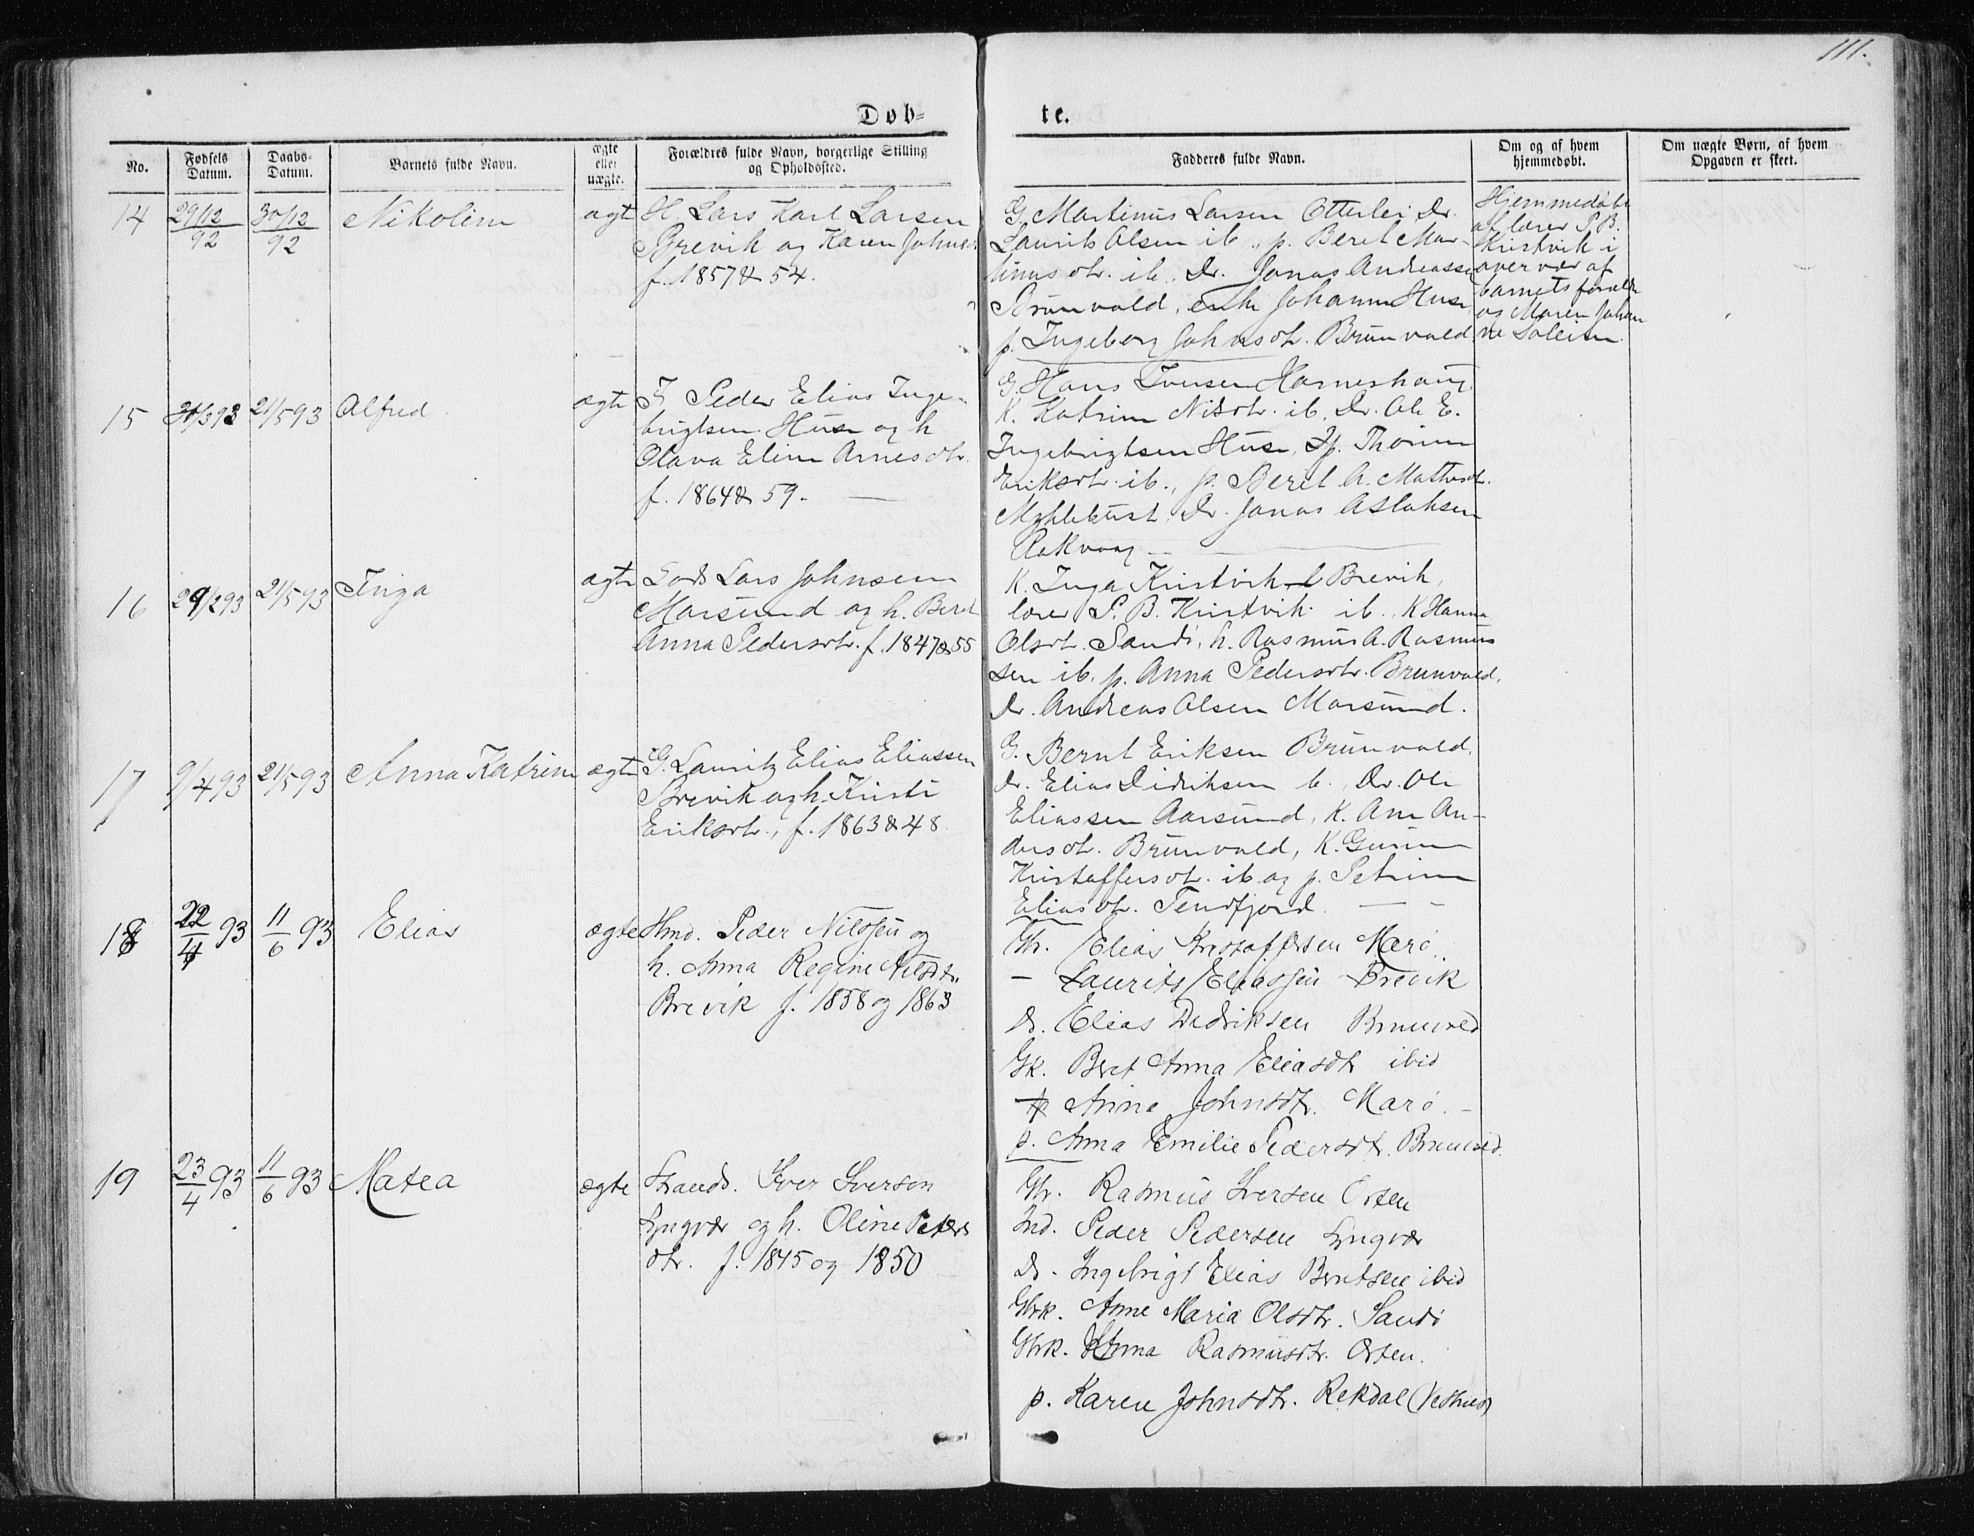 111.
Døb- te.
No.
Fødsels Datum.
Daabs- Datum.
Barnets fulde Navn.
ægte eller uægte.
Forældres fulde Navn, borgerlige Stilling og Opholdssted.
Fadderes fulde Navn.
Om og af hvem hjemmedøbt.
Om uægte Børn, af hvem Opgaven er skeet.
14 29/12 92 30/12 92 Nikoline ægt
H. Lars Karl Larsen
Brevik og Karen Johns
f. 1857 & 54.
G. Martinus Larsen Otterlei Dr.
Laurits Olsen ib., p. Beret Mar-
tinusdtr. ib. Dr. Jonas Andreassen
Brunvold, enke Johanna Huse
p. Ingeborg Johnsdtr. Brunvold
Hjemmedøbt
af lærer P. B.
Kristvik i
overvær af
barnets foreldre
og Maren Johan
ne Soleim
15 30/3 93 21/5 93 Alfred ægte
I. Peder Elias Inge-
brigtsen Huse og h
Olava Eline Arnesdtr.
f. 1864 & 59.
G. Hans Iversen Harneshaug,
K. Katrine Nilsdtr. ib. Dr. Ole E.
Ingebrigtsen Huse, Jp. Thorine
Eriksdtr. ib., p. Beret A. Mathisdtr.
Myklebust. Dr. Jonas Aslaksen
Rakvaag
16 29/2 93 21/5 93 Inga ægte
Lods Lars Johnsen
Marsund og h. Beret
Anna Pedersdtr. f. 1847 & 55
K. Inga Kristvik Brevik,
lærer P. B. Kristvik ib. K Hanna
Olsdtr. Sandø, h. Rasmus A. Rasmus
sen ib. p. Anna Pedersdtr. Brunvold,
Dr. Andreas Olsen Marsund.
17 9/4 93 21/5 93 Anna Katrine ægte
G. Lauritz Elias Eliassen
Brevik og h. Kristi
Eriksdtr., f. 1863 & 48.
G. Bernt Eriksen Brunvold,
Dr. Elias Didriksen ib. Dr. Ole
Eliassen Aarsund, K. Ane An-
dersdtr. Brunvold, K. Gurine
Kristoffersdtr. ib og p. Petrine
Eliasdtr. Tenfjord.
18 22/4 93 11/6 93 Elias ægte
Hmd. Peder Nilssen og
h. Anna Regine Nilsdtr.
Brevik f. 1858 og 1863
Gbr. Elias Kristoffersen Marø.
— Laurits Eliassen Brevik
D. Elias Didriksen Brunvold
Gk. Beret Anna Eliasdtr ibid
p Anne Johnsdtr. Marø.
p. Anna Emilie Pedersdtr. Brunvold.
19 23/4 93 11/6 93 Matea ægte
Strands. Iver Iversen
Lyngvær og h. Oline Peters
dtr. f. 1845 og 1850
Gbr. Rasmus Iversen Orten
Ind. Peder Pedersen Lyngvær
D. Ingebrigt Elias Berntsen ibid
Gbrk. Anne Maria Olsdtr. Sandø
Gbrk. Anna Rasmusdtr. Orten.
p. Karen Johnsdtr. Rekdal (Vestnes)